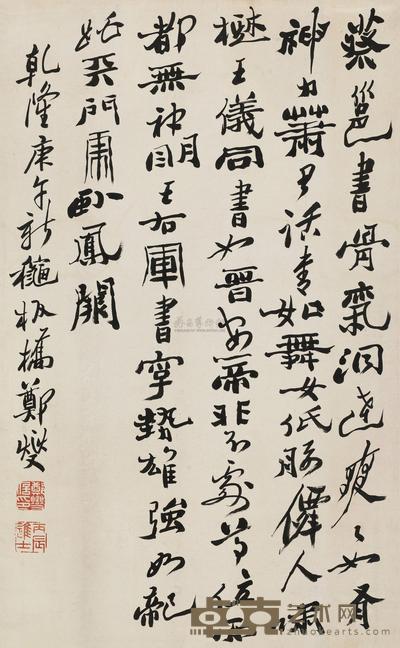 蔡邕書骨氣洞達爽〻如有
神力蕭思話書如舞女低腰僊人嘯
樹王儀同書如晉安帝非不處尊位而
都無神明王右軍書字勢雄強如龍
跳天門虎卧鳳闕
乾隆庚午新穐板橋鄭燮
丙辰進士
卓克艺术网